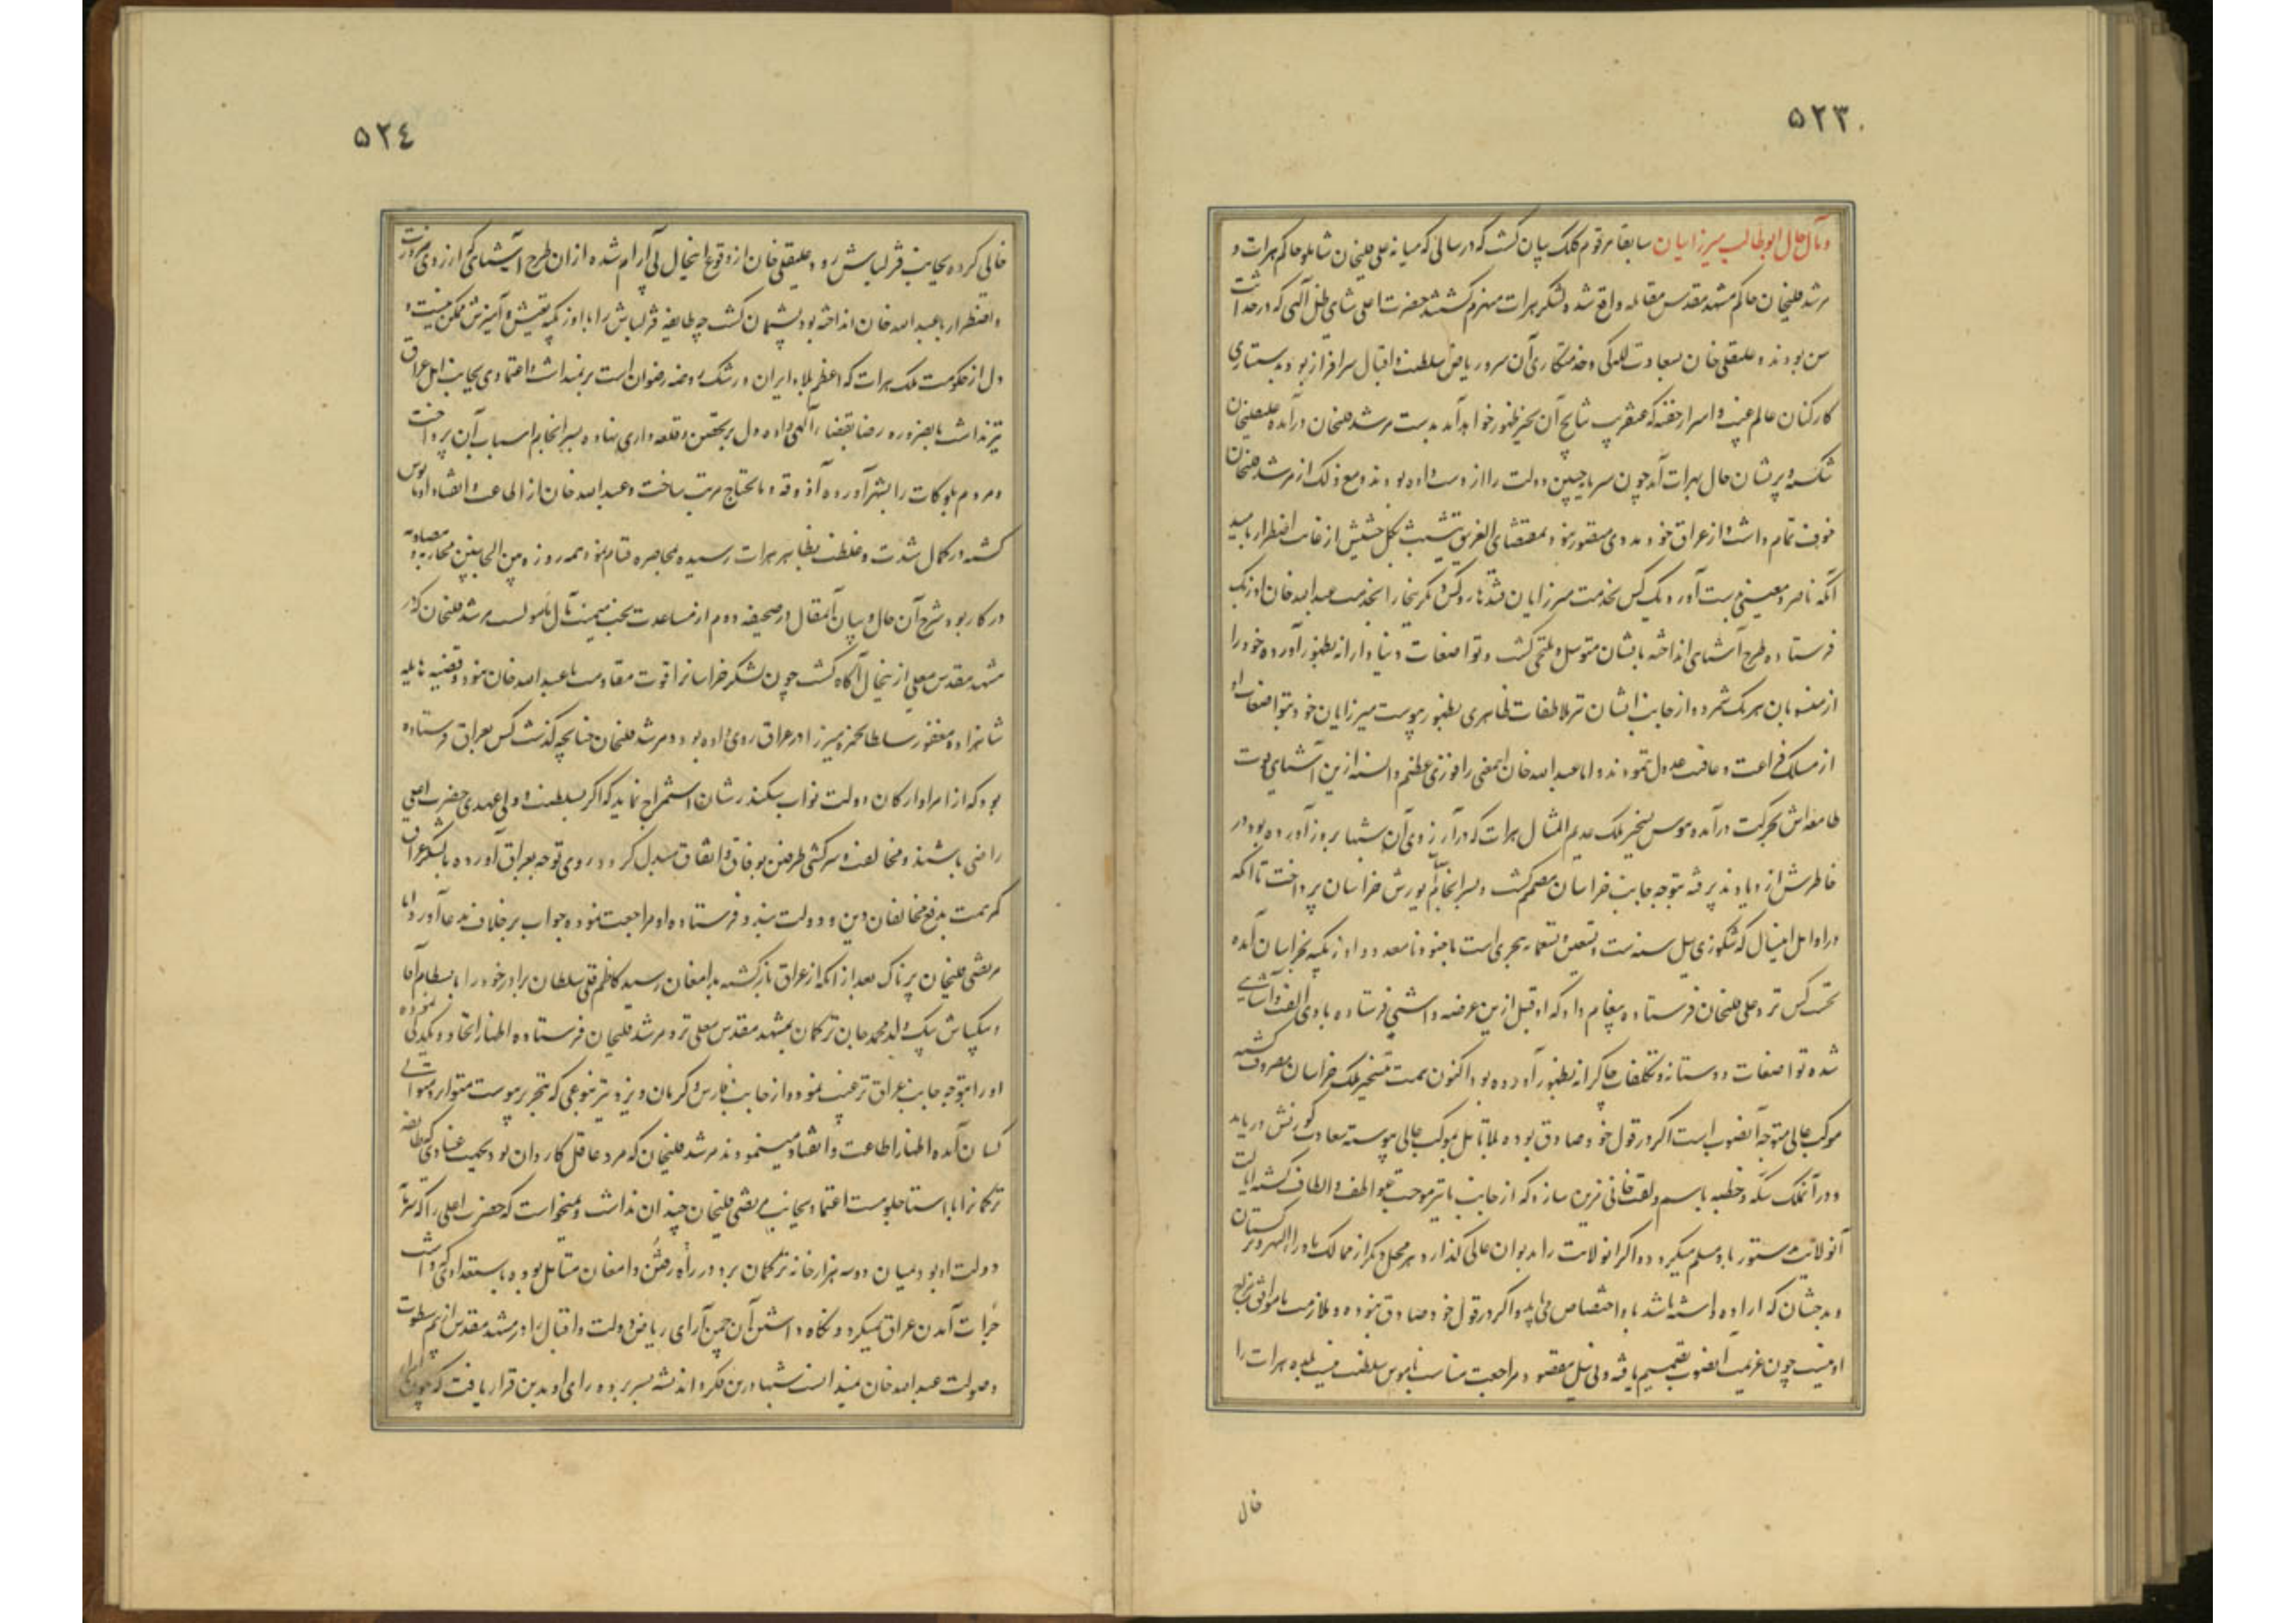 ۵۲۳
و مآل حال ابوطالب میرزا بیان سابقا مرقوم کلک بیان گشت که در سالی که میانه علی قلیخان شاملو حاکم هرات و
مرشد قلیخان حاکم مشهد مقدس مقابله واقع شد و لشکر هرات منهزم گشتند حضرت اعلی شاهی ظل آلهی که در حداثت
سن بودند و علیقلی خان بسعادت للگی و خدمتکاری آن سرو ریاض سلطنت و اقبال سرافراز بود بدستیاری
کارکنان عالم غیب و اسرار خفیه که عنقریب نتایج آن بحیز ظهور خواهد آمد بدست مرشد قلیخان درآمده علیقلیخان
شکسته و پریشان حال بهرات آمد چون سرمایه چنین دولت را از دست داده بودند و مع ذلک از مرشد قلیخان
خوف تمام داشت و از عراق خود مددی متصور نبود بمقتضای الغریق یتشبث بکل حشیش از غایت اضطرار بامید
آنکه ناصر و معینی بدست آورد یک کس بخدمت میرزایان قندهار و کس دیگر ببخارا بخدمت عبدالله خان اوزبک
فرستاده طرح آشنائی انداخته بایشان متوسل و ملتجی گشت و تواضعات دنیادارانه بظهور آورده خود را
از منسوبان هر یک شمرده از جانب ایشان نیز ملاطفات ظاهری بظهور پیوست میرزایان خود بتواضعات او
از مسلک فراغت و عافیت عدول ننمودند و اما عبدالله خان اینمعنی را فوزی عظیم دانسته ازین آشنائی قوت
طامعه‌اش بحرکت درآمده هوس تسخیر ملک عدیم المثال هرات که در آرزوی آن شبها بروز آورده بود در
خاطرش ازدیاد پذیرفته بتوجه جانب خراسان مصمم گشت و بسرانجام یورش خراسان پرداخت تا آنکه
در اوایل اینسال که شکوزئیل سنه ست و تسعین و تسعمایه هجری است با جنود نامعدود اوزبکیه بخراسان آمده
نخست کس نزد علی قلیخان فرستاده پیغام داد که او قبل ازین عرضه داشتی فرستاده بادی الفت و آشنائی
شده تواضعات دوستانه و تکلفات چاکرانه بظهور آورده بود اکنون همت بتسخیر ملک خراسان مصروف گشته
موکب عالی متوجه آنصوب است اگر در قول خود صادق بوده بلا تامل بموکب عالی پیوسته سعادت کورنش دریابد
و در آنملک سکه و خطبه باسم و لقب خانی مزین سازد که از جانب ما نیز موجب عواطف و الطاف گشته ایالت
آنولایت بدستور باو مسلم میگردد و اگر آنولایت را بدیوان عالی گذارد هر محل دیگر از ممالک ماوراءالنهر و ترکستان
و بدخشان که اراده داشته باشد باو اختصاص می‌یابد و اگر در قول خود صادق نبوده و ملازمت ما موافق مزاج
او نیست چون عزیمت آنصوب تصمیم یافته و بی نیل مقصود مراجعت مناسب ناموس سلطنت نیست بلده هرات را
خال
۵۲٤
خالی کرده بجانب قزلباش رود علیقلی خان از وقوع اینحال بی آرام شده از آن طرح آشنائی که از روی ضرورت
و اضطرار با عبدالله خان انداخته بود پشیمان گشت چه طایفه قزلباش را با اوزبکیه تعیش و آمیزش ممکن نیست و
دل از حکومت ملک هرات که اعظم بلاد ایران و رشک روضه رضوان است برنمیداشت و اعتمادی بجانب اهل عراق
نیز نداشت بالضروره رضا بقضاء آلهی داده دل بر تحصن و قلعه داری نهاده بسرانجام اسباب آن پرداخت
و مردم بلوکات را بشهر آورده آذوقه و مایحتاج مرتب ساخت و عبدالله خان از اطاعت و انقیاد او مأیوس
گشته در کمال شدت و غلظت بظاهر هرات رسیده بمحاصره قیام نمود همه روزه من الجانبین محاربه و مصادمه
در کار بود شرح آن حال و بیان آنمقال در صحیفه دوم از مساعدت بخت میمنت مآل مأمولست مرشد قلیخان که در
مشهد مقدس معلی از اینحال آگاه گشت چون لشکر خراسانرا قوت مقاومت با عبدالله خان نبود و قضیه هایله
شاهزاده مغفور سلطان حمزه میرزا در عراق روی داده بود و مرشد قلیخان چنانچه گذشت کس بعراق فرستاده
بود که از امرا و ارکان دولت نواب سکندر شان استمزاج نماید که اگر بسلطنت و ولی عهدی حضرت اعلی
راضی باشند و مخالفت و سرکشی طرفین بوفاق و اتفاق مبدل گردد روی توجه بعراق آورده با لشکر عراق
کمر همت بدفع مخالفان دین و دولت بندد فرستاده او مراجعت نموده جواب برخلاف مدعا آورد و اما
مرتضی قلیخان پرناک بعد از آنکه از عراق بازگشته بدامغان رسید کاظم قلی سلطان برادر خود را با بسطام آقا
و بیکباش بیک ولد محمد جان ترکمان بمشهد مقدس معلی نزد مرشد قلیخان فرستاده اظهار اتحاد و یکدلی نموده
او را بتوجه جانب عراق ترغیب نموده و از جانب فارس و کرمان و یزد نیز بنوعی که بتحریر پیوست متواتر و متوالی
کسان آمده اظهار اطاعت و انقیاد مینمودند مرشد قلیخان که مرد عاقل کاردان بود بجهت عنادی که طایفه
ترکمانرا با استاجلو هست اعتماد بجانب مرتضی قلیخان چندان نداشت و نمیخواست که حضرت اعلی را که سرمایه
دولت او بود میان دو سه هزار خانه ترکمان برد و در راه رفتن دامغان متأمل بوده باستعدادی که داشت
جرأت آمدن عراق نمیکرد و نگاه داشتن آن چمن آرای ریاض دولت و اقبال را در مشهد مقدس از بیم سطوت
و صولت عبدالله خان نمیتوانست شبها درین فکر و اندیشه بسر برده رای او بدین قرار یافت که چون